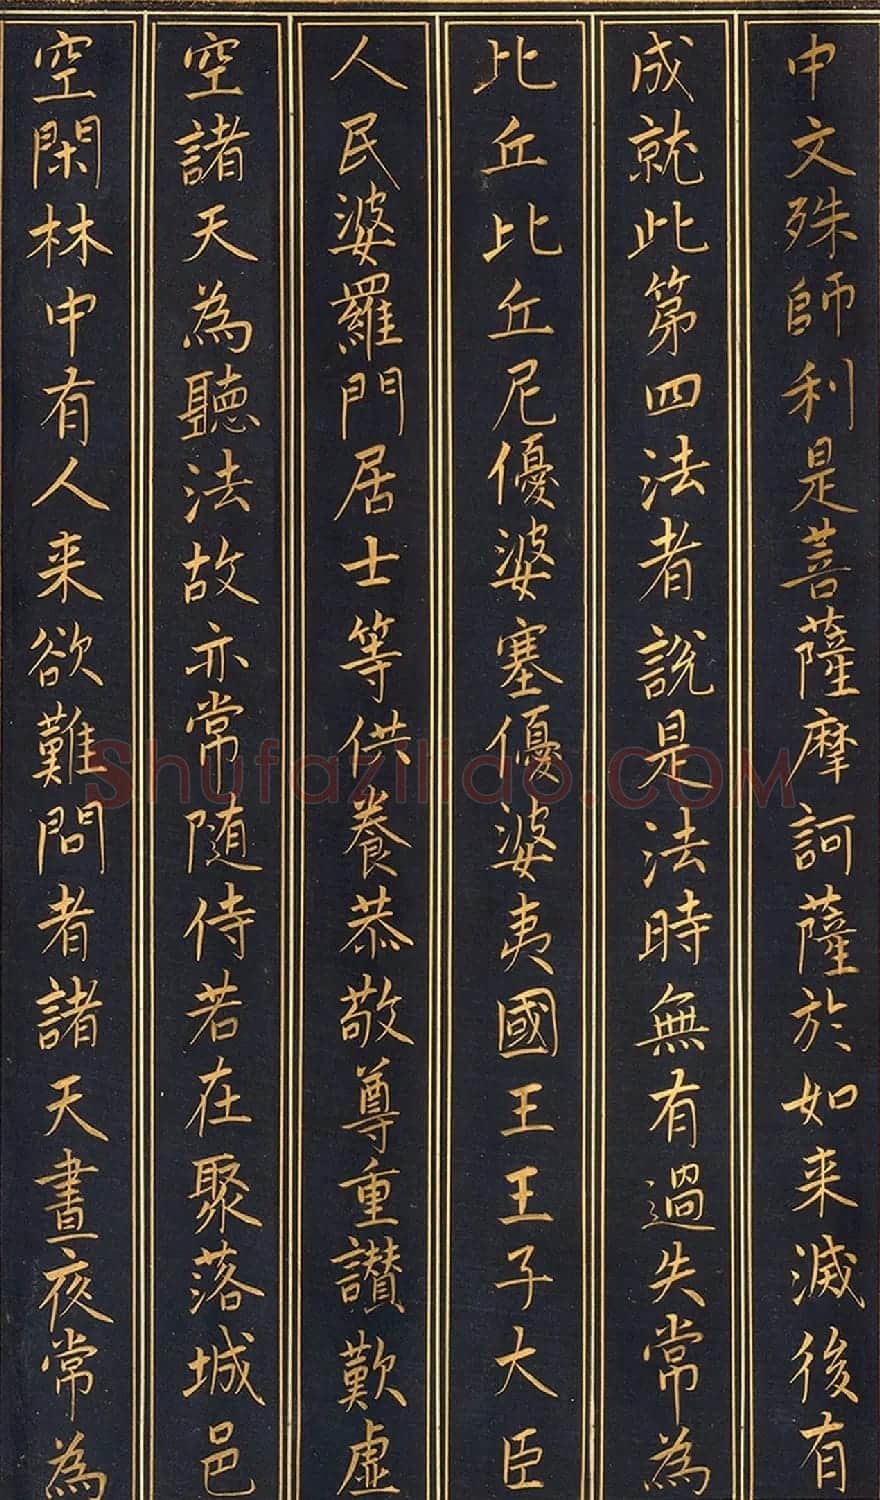 中文殊師利是菩薩摩訶薩於如来滅後有
成就此第四法者說是法時無有過失常為
比丘比丘尼優婆塞優婆夷國王王子大臣
人民婆羅門居士等供養恭敬尊重讃歎虛
空諸天為聽法故亦常随侍若在聚落城邑
空閑林中有人来欲難問者諸天晝夜常為
Shufaziliao.COM